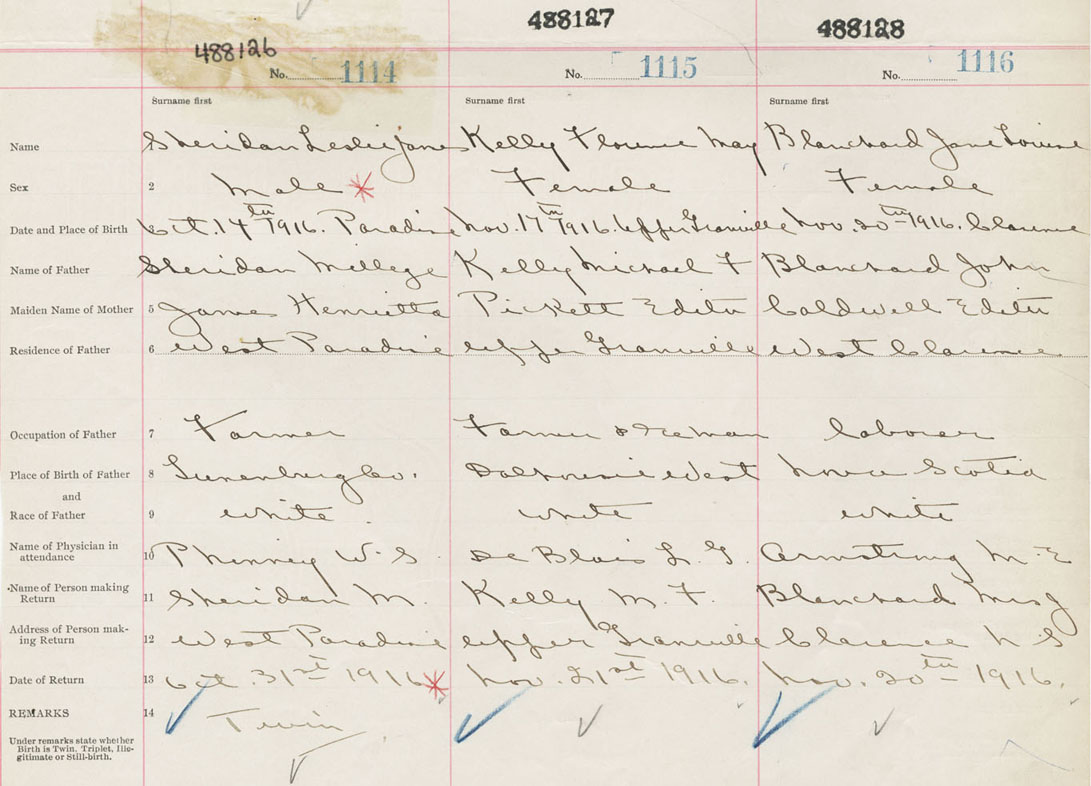 488126 488127 488128
No. 1114 No. 1115 No. 1116
Surname first Surname first Surname first
Name Sheridan Leslie James Kelly Florence May Blanchard Jane Louise
Sex 2 Male Female Female
Date and Place of Birth Oct. 14th 1916. Paradise Nov. 17th 1916. Upper Granville Nov. 20th 1916. Clarence
Name of Father Sheridan Kelly Michael F Blanchard John
Maiden Name of Mother 5 James Henrietta Pickett Edith Caldwell Edith
Residence of Father 6 West Paradise Upper Granville West Clarence
Occupation of Father 7 Farmer Farmer & laborer
Place of Birth of Father 8 Lunenburg Co. Dalhousie West Nova Scotia
and
Race of Father 9 White White White
Name of Physician in
attendance 10 Phinney W. S. De Blois L. G. Armstrong M E
Name of Person making
Return 11 Sheridan M. Kelly M. F. Blanchard Mrs J
Address of Person mak-
ing Return 12 West Paradise Upper Granville Clarence N S
Date of Return 13 Oct. 31st 1916 Nov. 21st 1916. Nov. 20th 1916.
REMARKS 14 Twin
Under remarks state whether
Birth is Twin, Triplet, Ille-
gitimate or Still-birth.